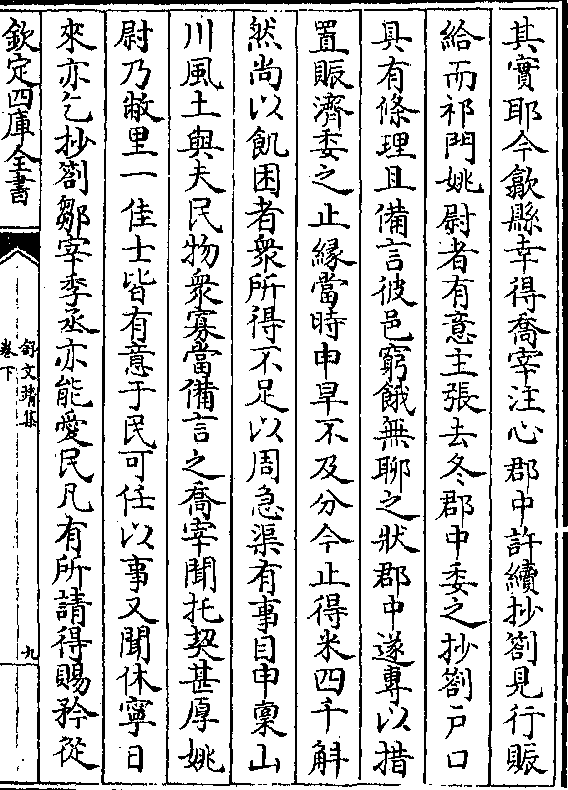 其實耶今歙縣幸得喬宰注心郡中許續抄劄見行賑
給而祁門姚尉者有意主張去冬郡中委之抄劄戶口
具有條理且備言彼邑窮餓無聊之狀郡中遂專以措
置賑濟委之止緣當時申旱不及分今止得米四千斛
然尚以飢困者衆所得不足以周急渠有事目申稟山
川風土與夫民物衆寡當備言之喬宰聞托契甚厚姚
尉乃敝里一佳士皆有意于民可任以事又聞休寧日
來亦乞抄劄鄒宰李丞亦能愛民凡有所請得賜矜從
欽定四庫全書
舒文靖集
卷下
九